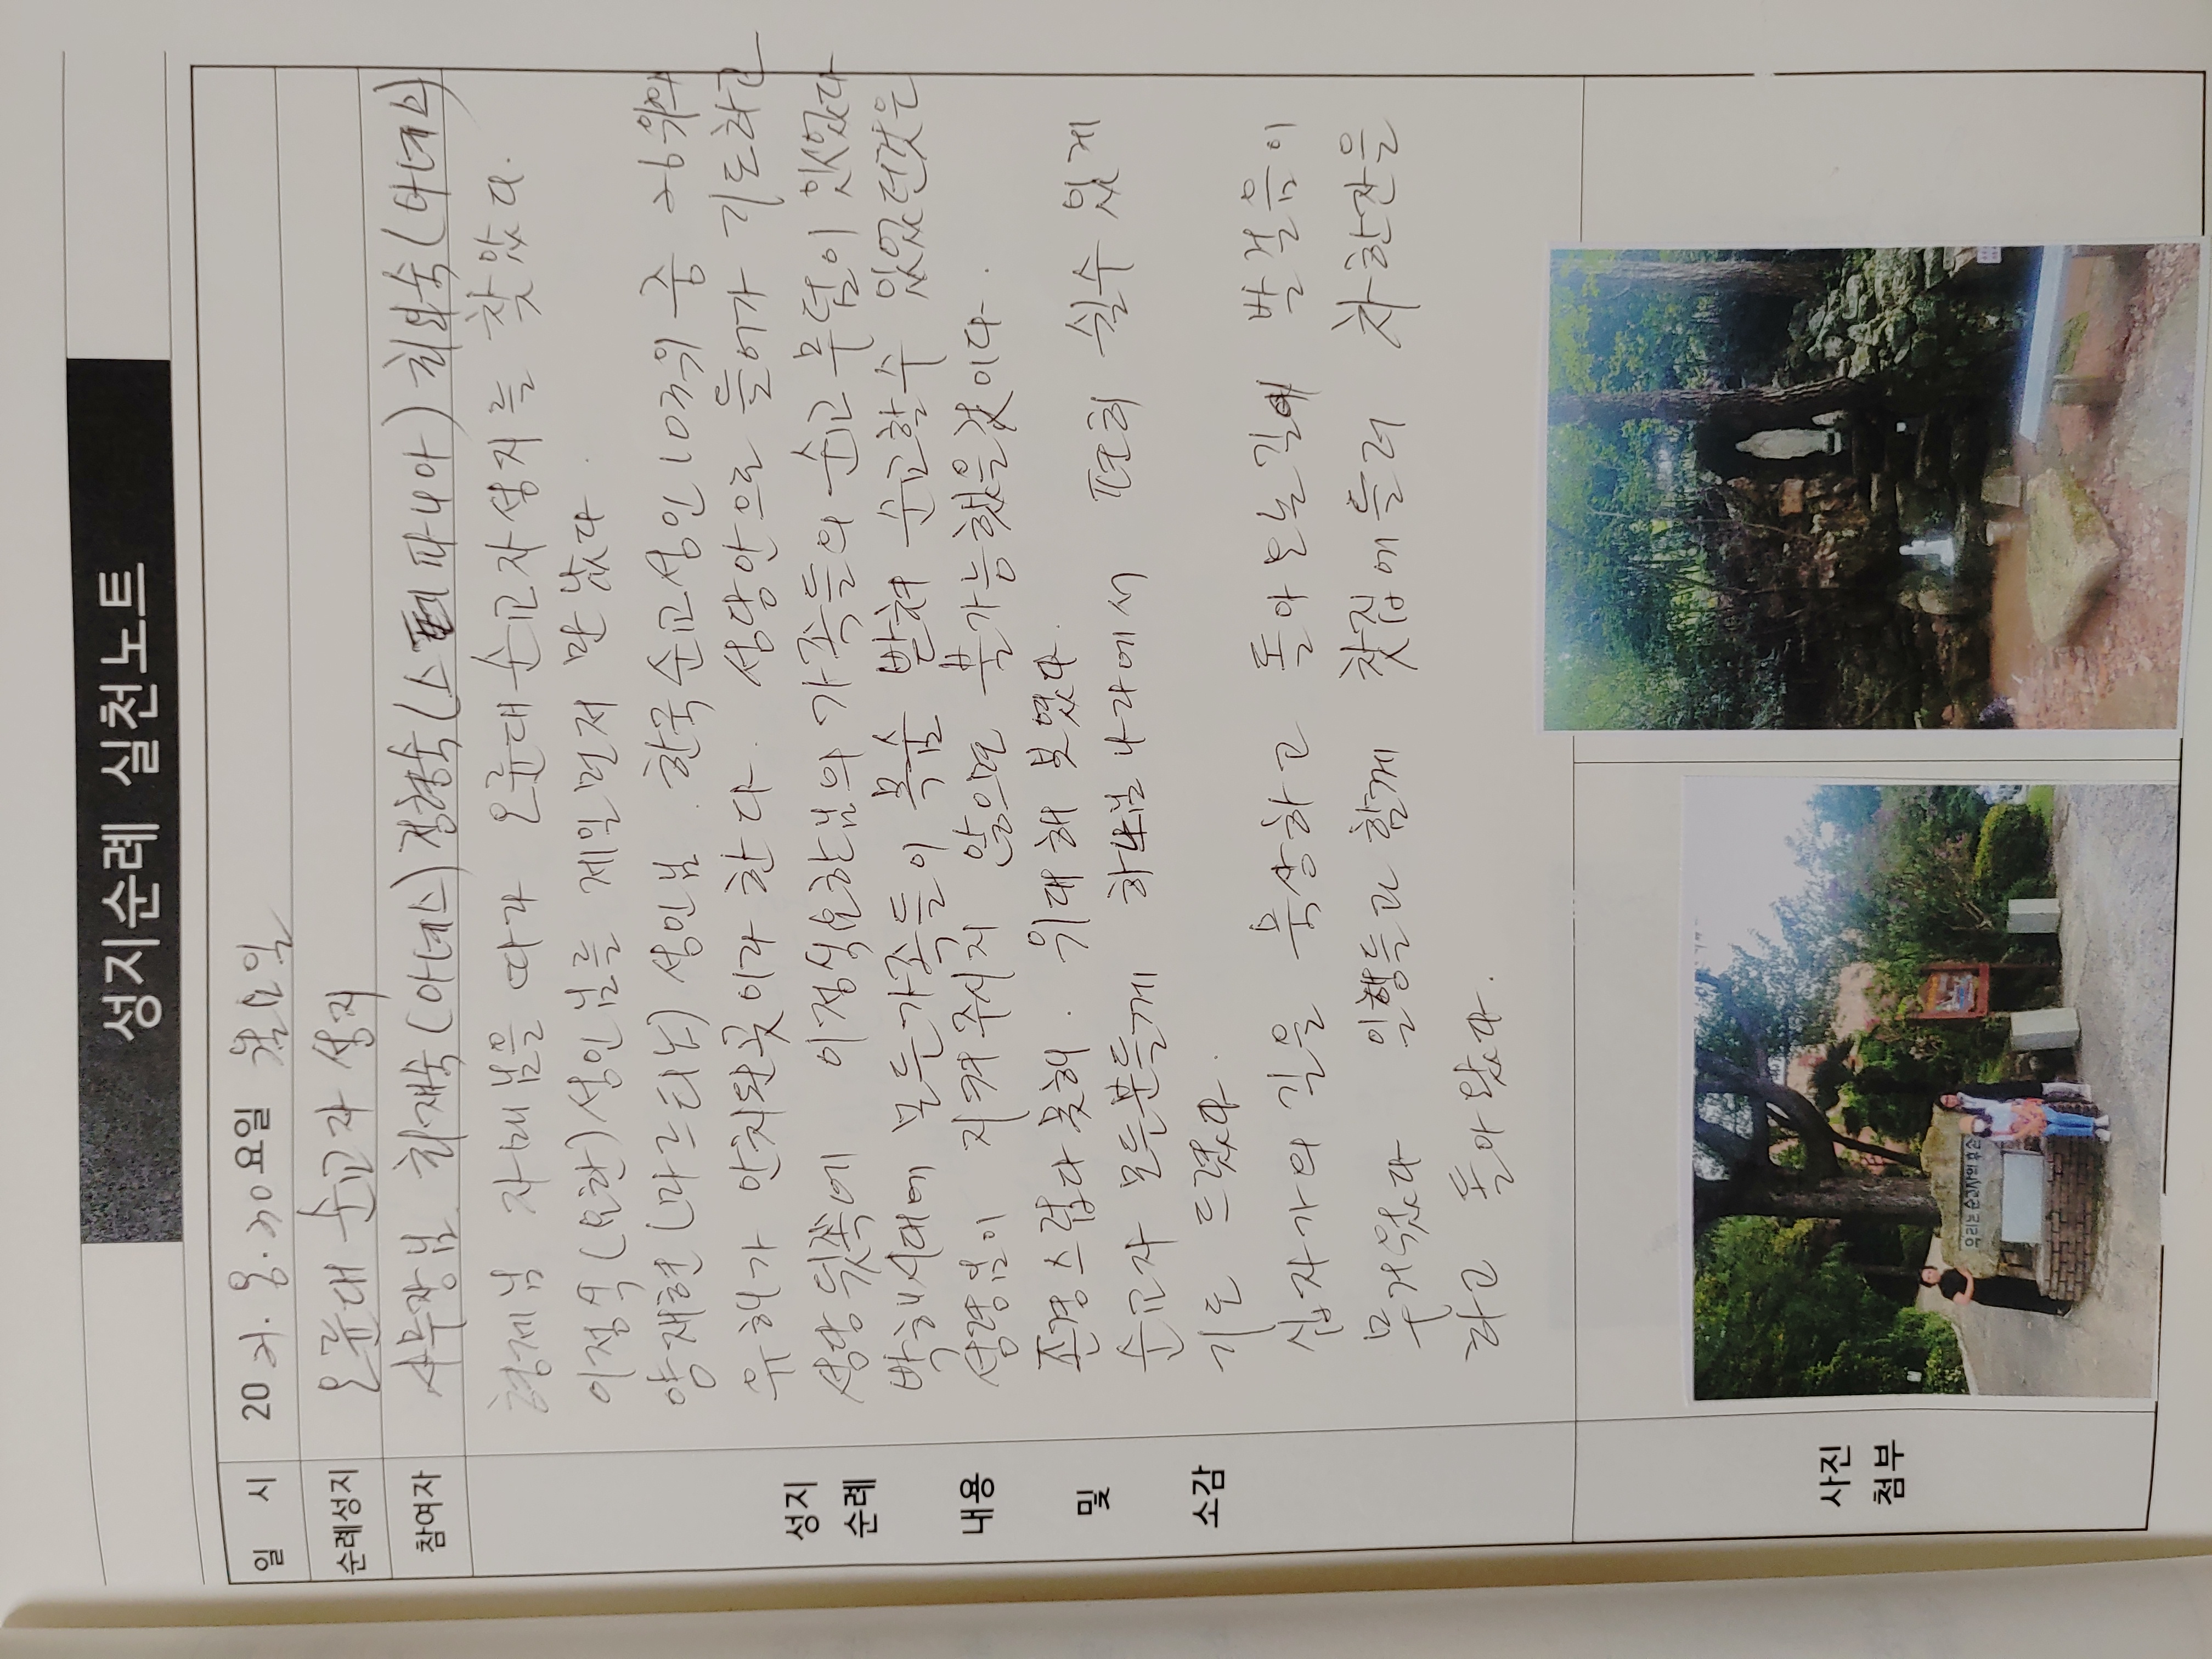 성지순례 실천노트
일 시 2021. 8. 30 요일 월요일
순례성지 오륜대 순교자 성지
참여자 사무장님 최재숙(아녜스) 정형숙(스페파니아) 최와숙(아녜스)
성지 순례 내용 및 소감
형제님 자매님을 따라 오륜대순교자성지를 찾았다.
이정식(요한)성인님를 제일먼저 만났다.
양재현(마르티노) 성인님. 한국순교성인 103위 중 26위의
유해가 안치된곳이라 한다. 성당안으로 들어가 기도하고
성당뒷쪽에 이정식요한님의 가족들의 순교 무덤이 있었다
박해시대에 모든가족들이 목숨 받쳐 순교할수 있었던것은
성령님이 지켜주시지 않으면 불가능했을것이다.
존경스럽다 못해. 위대해 보였다.
순교자 모든분들께 하나님 나라에서 편히 쉴수 있게
기도 드렸다.
십자가의 길을 묵상하고 돌아오는길에 발걸음이
무거웠다 일행들과 함께 찻집에들러 차한잔을
하고 돌아왔다.
사진
첨부
우리는 순교자의 후손